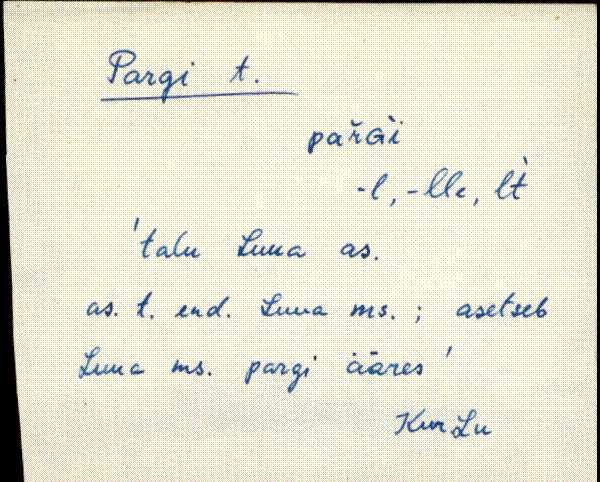 Pargi t.
pař̀Gi
-l, -lle, lt̀
'talu Luua as.
as. t. end. Luua ms.; asetseb
Luua ms. pargi ääres'
Kur Lu